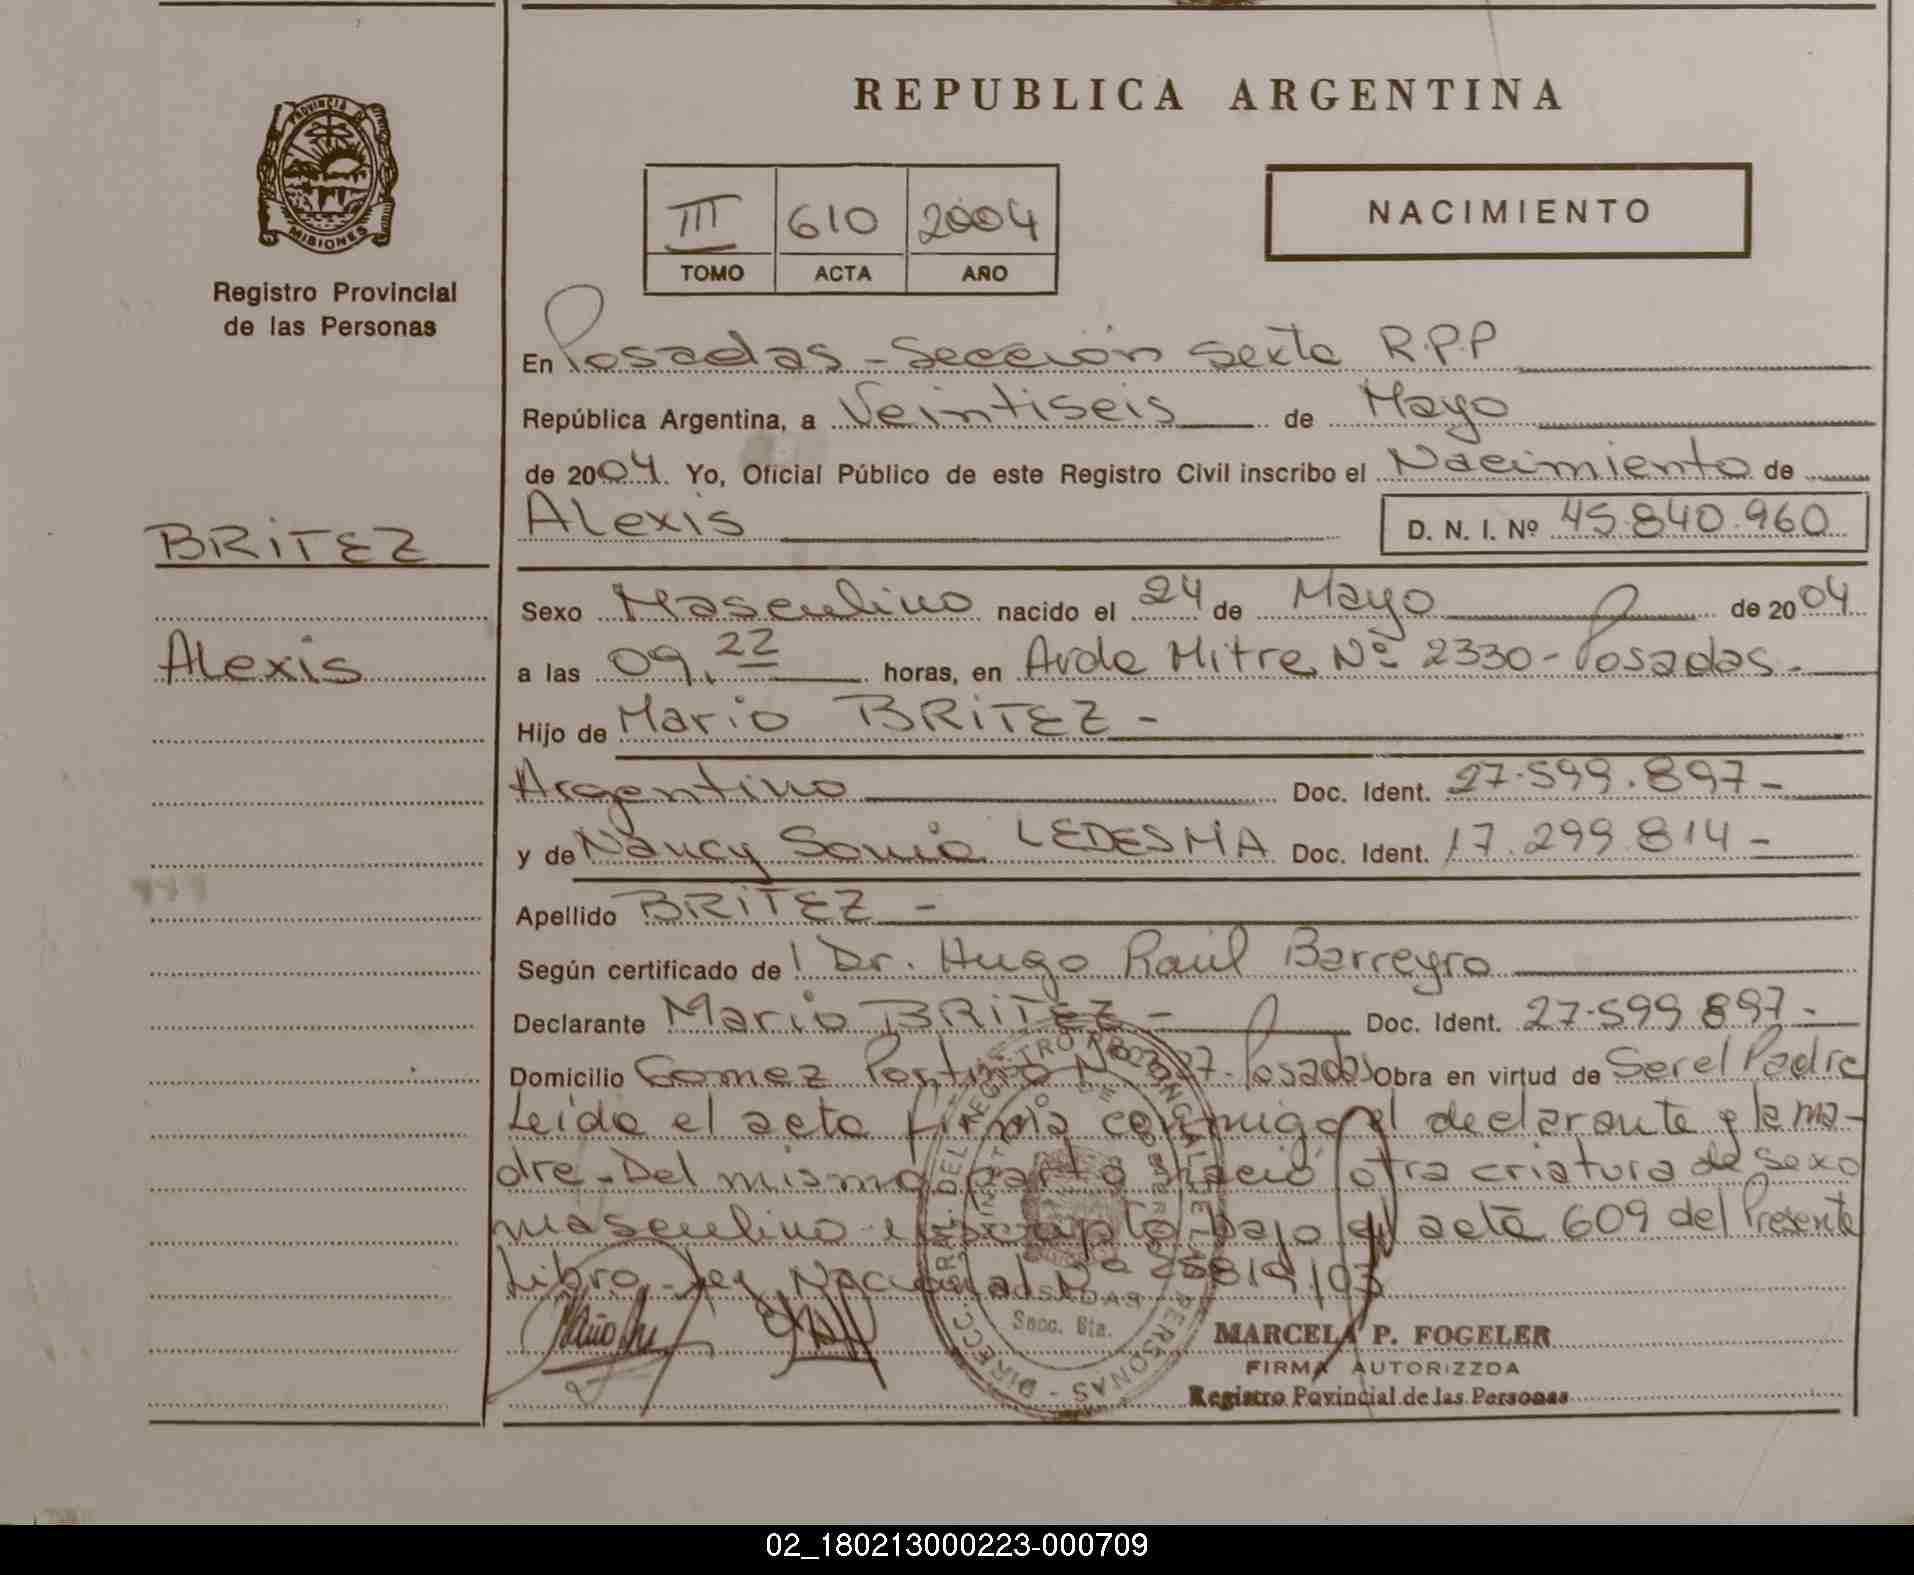 REPUBLICA ARGENTINA
PROVINCIA DE
MISIONES
Registro Provincial
de las Personas
III 610 2004
TOMO ACTA AÑO
NACIMIENTO
En Posadas - Sección Sexta R.P.P
República Argentina, a Veintiseis de Mayo
de 2004. Yo, Oficial Público de este Registro Civil inscribo el Nacimiento de
Alexis D. N. I. Nº 45.840.960
BRITEZ
Alexis
Sexo Masculino nacido el 24 de Mayo de 2004
a las 09,22 horas, en Avda Mitre Nº 2330- Posadas-
Hijo de Mario BRITEZ -
Argentino Doc. Ident. 27.599.897-
y de Nancy Sonia LEDESMA Doc. Ident. 17.299.814-
Apellido BRITEZ -
Según certificado de Dr. Hugo Raúl Barreyro
Declarante Mario BRITEZ - Doc. Ident. 27.599.897-
Domicilio Gomez Portinho Posadas Obra en virtud de Ser el Padre
Leída el acta firma conmigo el declarante y la ma-
dre. Del mismo parto nació otra criatura de sexo
masculino inscripto bajo el acta 609 del Presente
Libro. Ley Nacional Nº 25819/03
POSADAS
Secc. 6ta.
MARCELA P. FOGELER
FIRMA AUTORIZZDA
Registro Povincial de las Personas
02_180213000223-000709